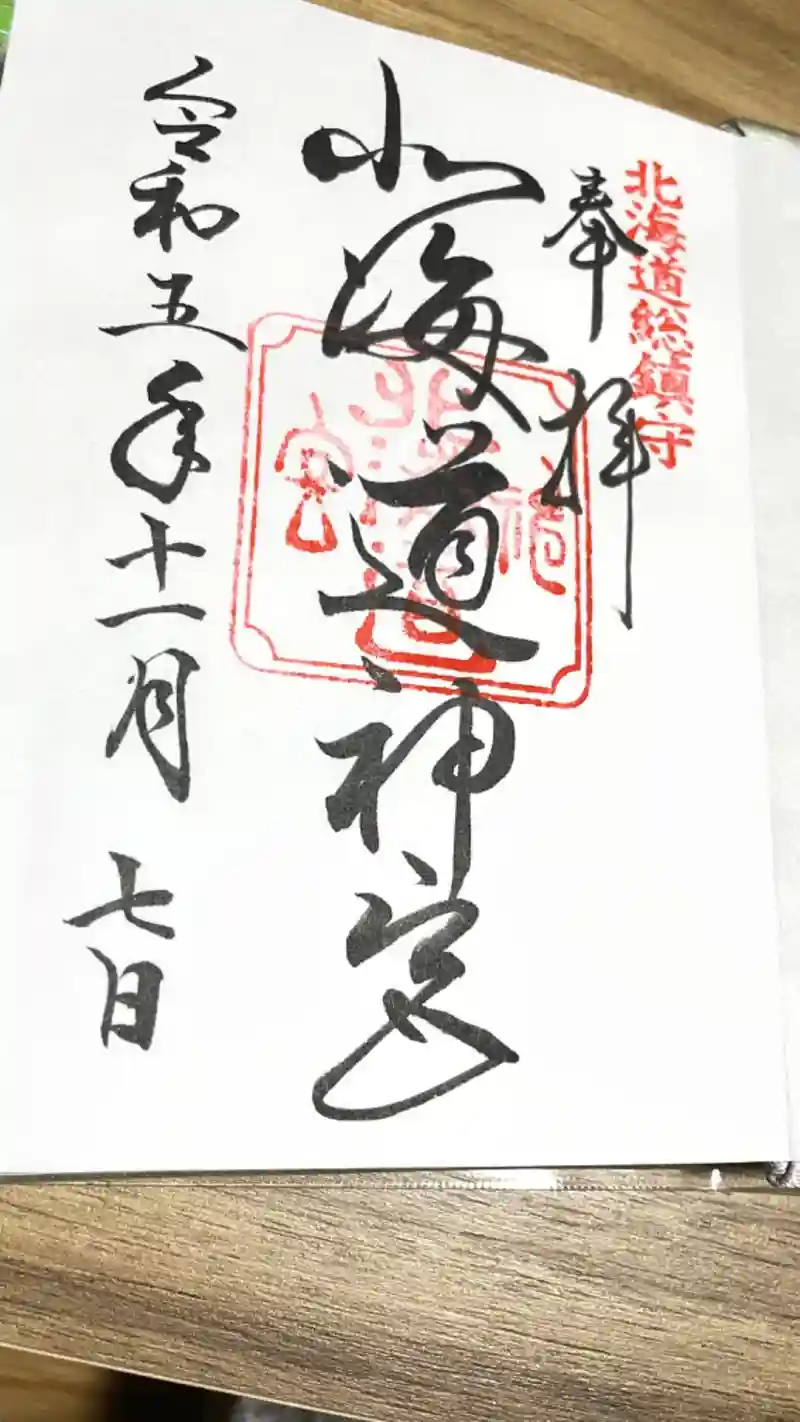 北海道総鎮守
奉拝
北海道神宮
北海道神宮
令和五年十一月七日